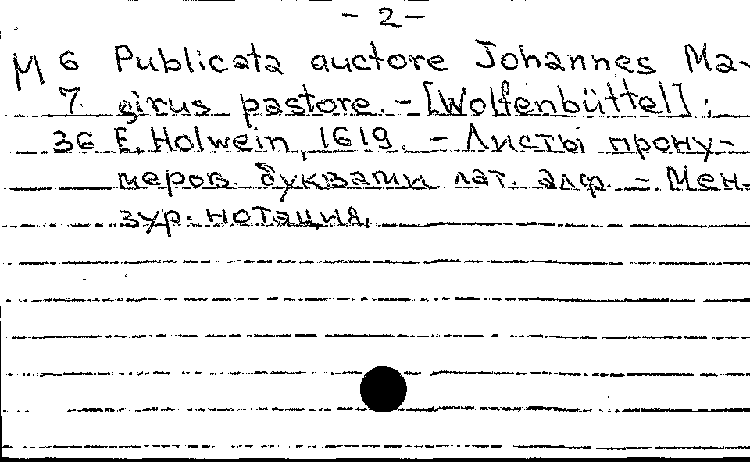 - 2 -
М 6 Publicata auctore Johannes Ma-
7 girus pastore. - [Wolfenbüttel];
36 E. Holwein, 1619. - Листы прону-
меров. буквами лат. алф. - Мен-
зур. нотация.